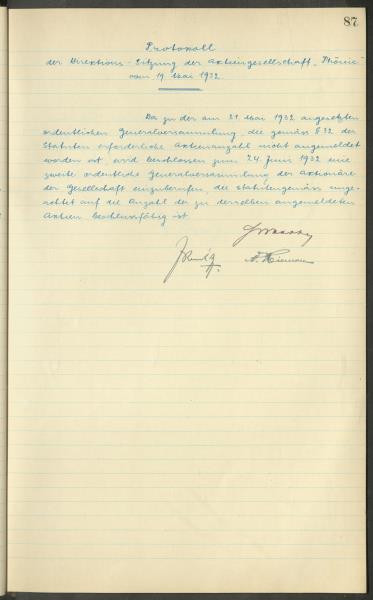 87
Protokoll
der Direktions-Sitzung der Aktiengesellschaft „Phönix“
vom 19 Mai 1932.
Da zu der am 31. Mai 1932 angesetzten
ordentlichen Generalversammlung, die gemäss § 32 der
Statuten erforderliche Aktienanzahl nicht angemeldet
worden ist, wird beschlossen zum 24. Juni 1932 eine
zweite ordentliche Generalversammlung der Aktionäre
der Gesellschaft einzuberufen, die statutengemäss unge-
achtet auf die Anzahl der zu derselben angemeldeten
Aktien beschlussfähig ist